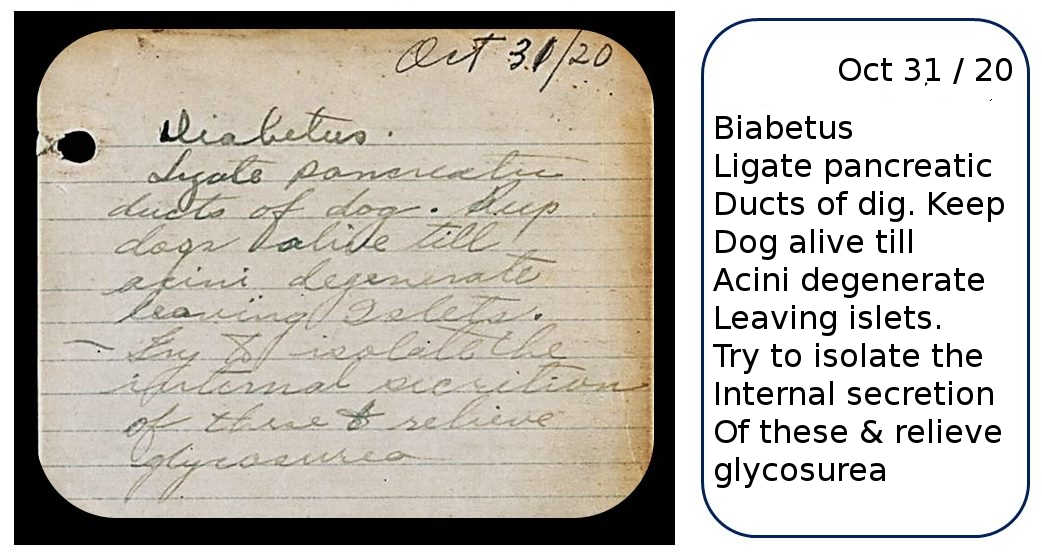 Oct 31/20
Diabetus.
Ligate pancreatic
ducts of dog. Keep
dogs alive till
acini degenerate
leaving Islets.
Try to isolate the
internal secretion
of these & relieve
glycosurea
Oct 31 / 20
Biabetus
Ligate pancreatic
Ducts of dig. Keep
Dog alive till
Acini degenerate
Leaving islets.
Try to isolate the
Internal secretion
Of these & relieve
glycosurea